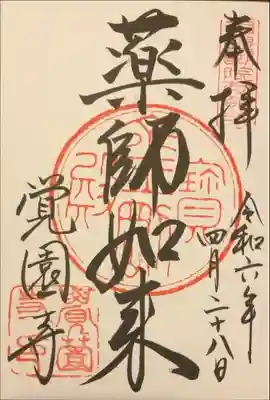 奉拝
令和六年
四月二十八日
薬師如来
覚園寺